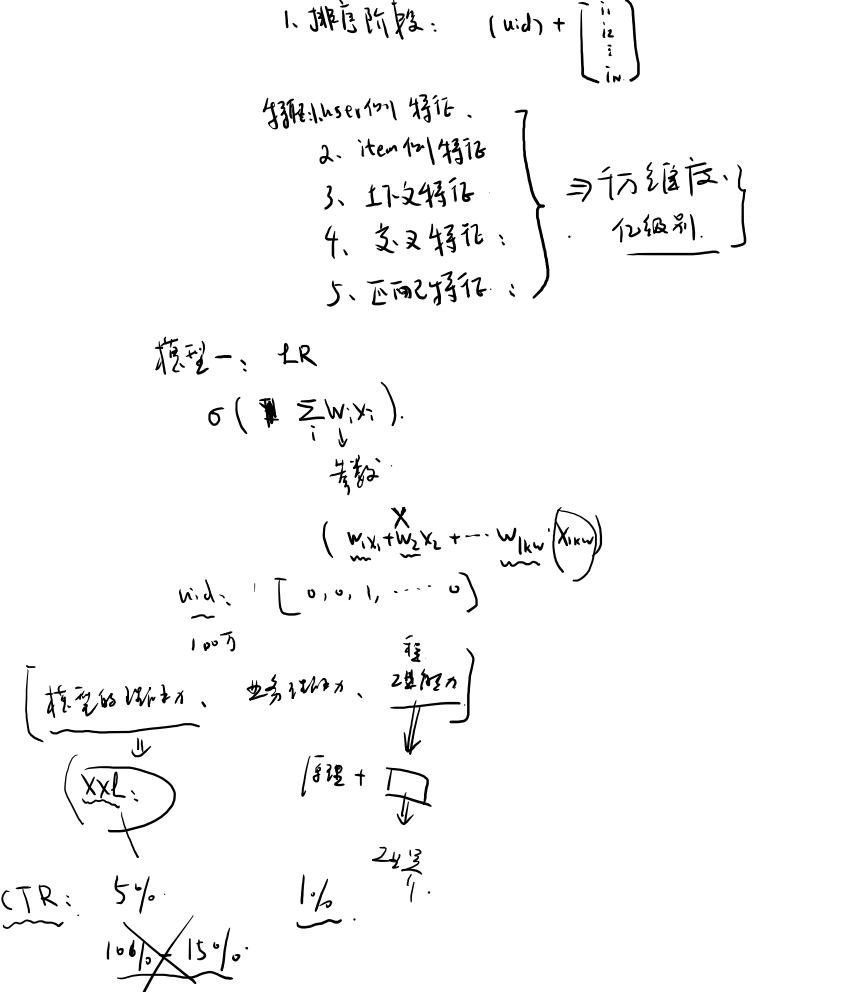 1、排序阶段: (uid) + [i1 i2 ⋮ iN]
特征:1.user侧特征、
2、item侧特征
3、上下文特征
4、交叉特征:
5、匹配特征:
⇒千万维度、
亿级别.
模型一: LR
σ( Σ_i w_i x_i ).
↓
参数
( w1x1+w2x2+…w1kw·x1kw)
uid: [0,0,1,……0]
100万
[模型的理解能力、业务理解力、工程能力]
⇓ ⇓
(XXL: 原理 +
⇓
CTR: 5% 1%.
10% - 15%.